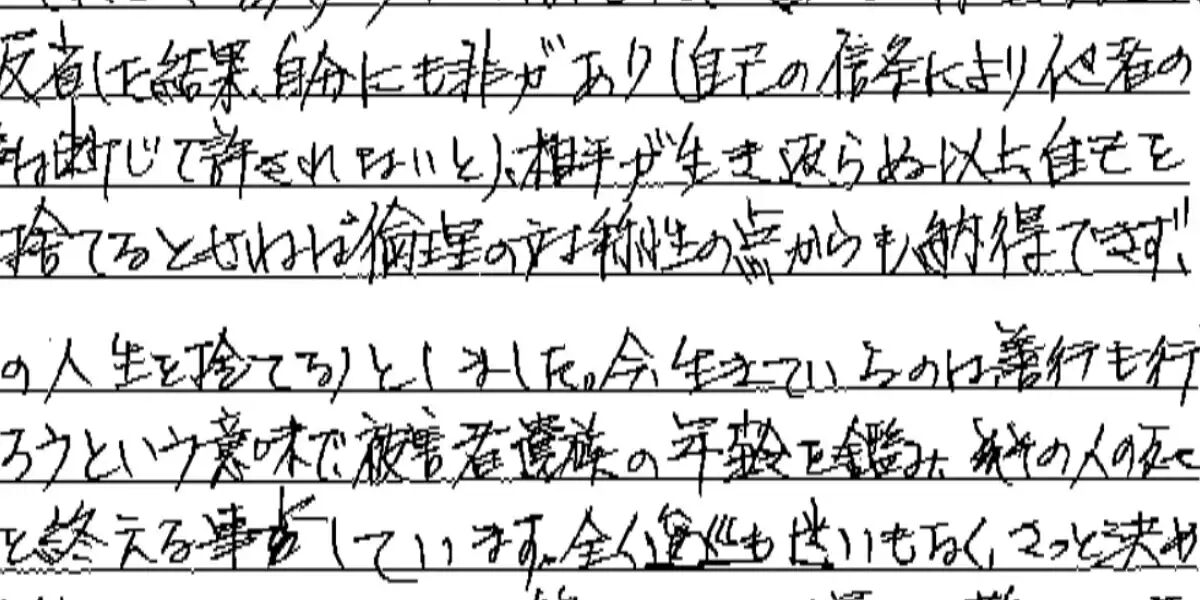 反省した結果、自分にも非があり(自己の信条により他者の
は断じて許されないと)、相手が生き返らぬ以上自己を
捨てるとせねば倫理の対称性の点からも納得できず、
の人生を捨てる)としました。今、生きているのは善行も行
ろうという意味で、被害者遺族の年齢を鑑み、その人の死
を終える事としています。全く迷いもなく、さっと決め